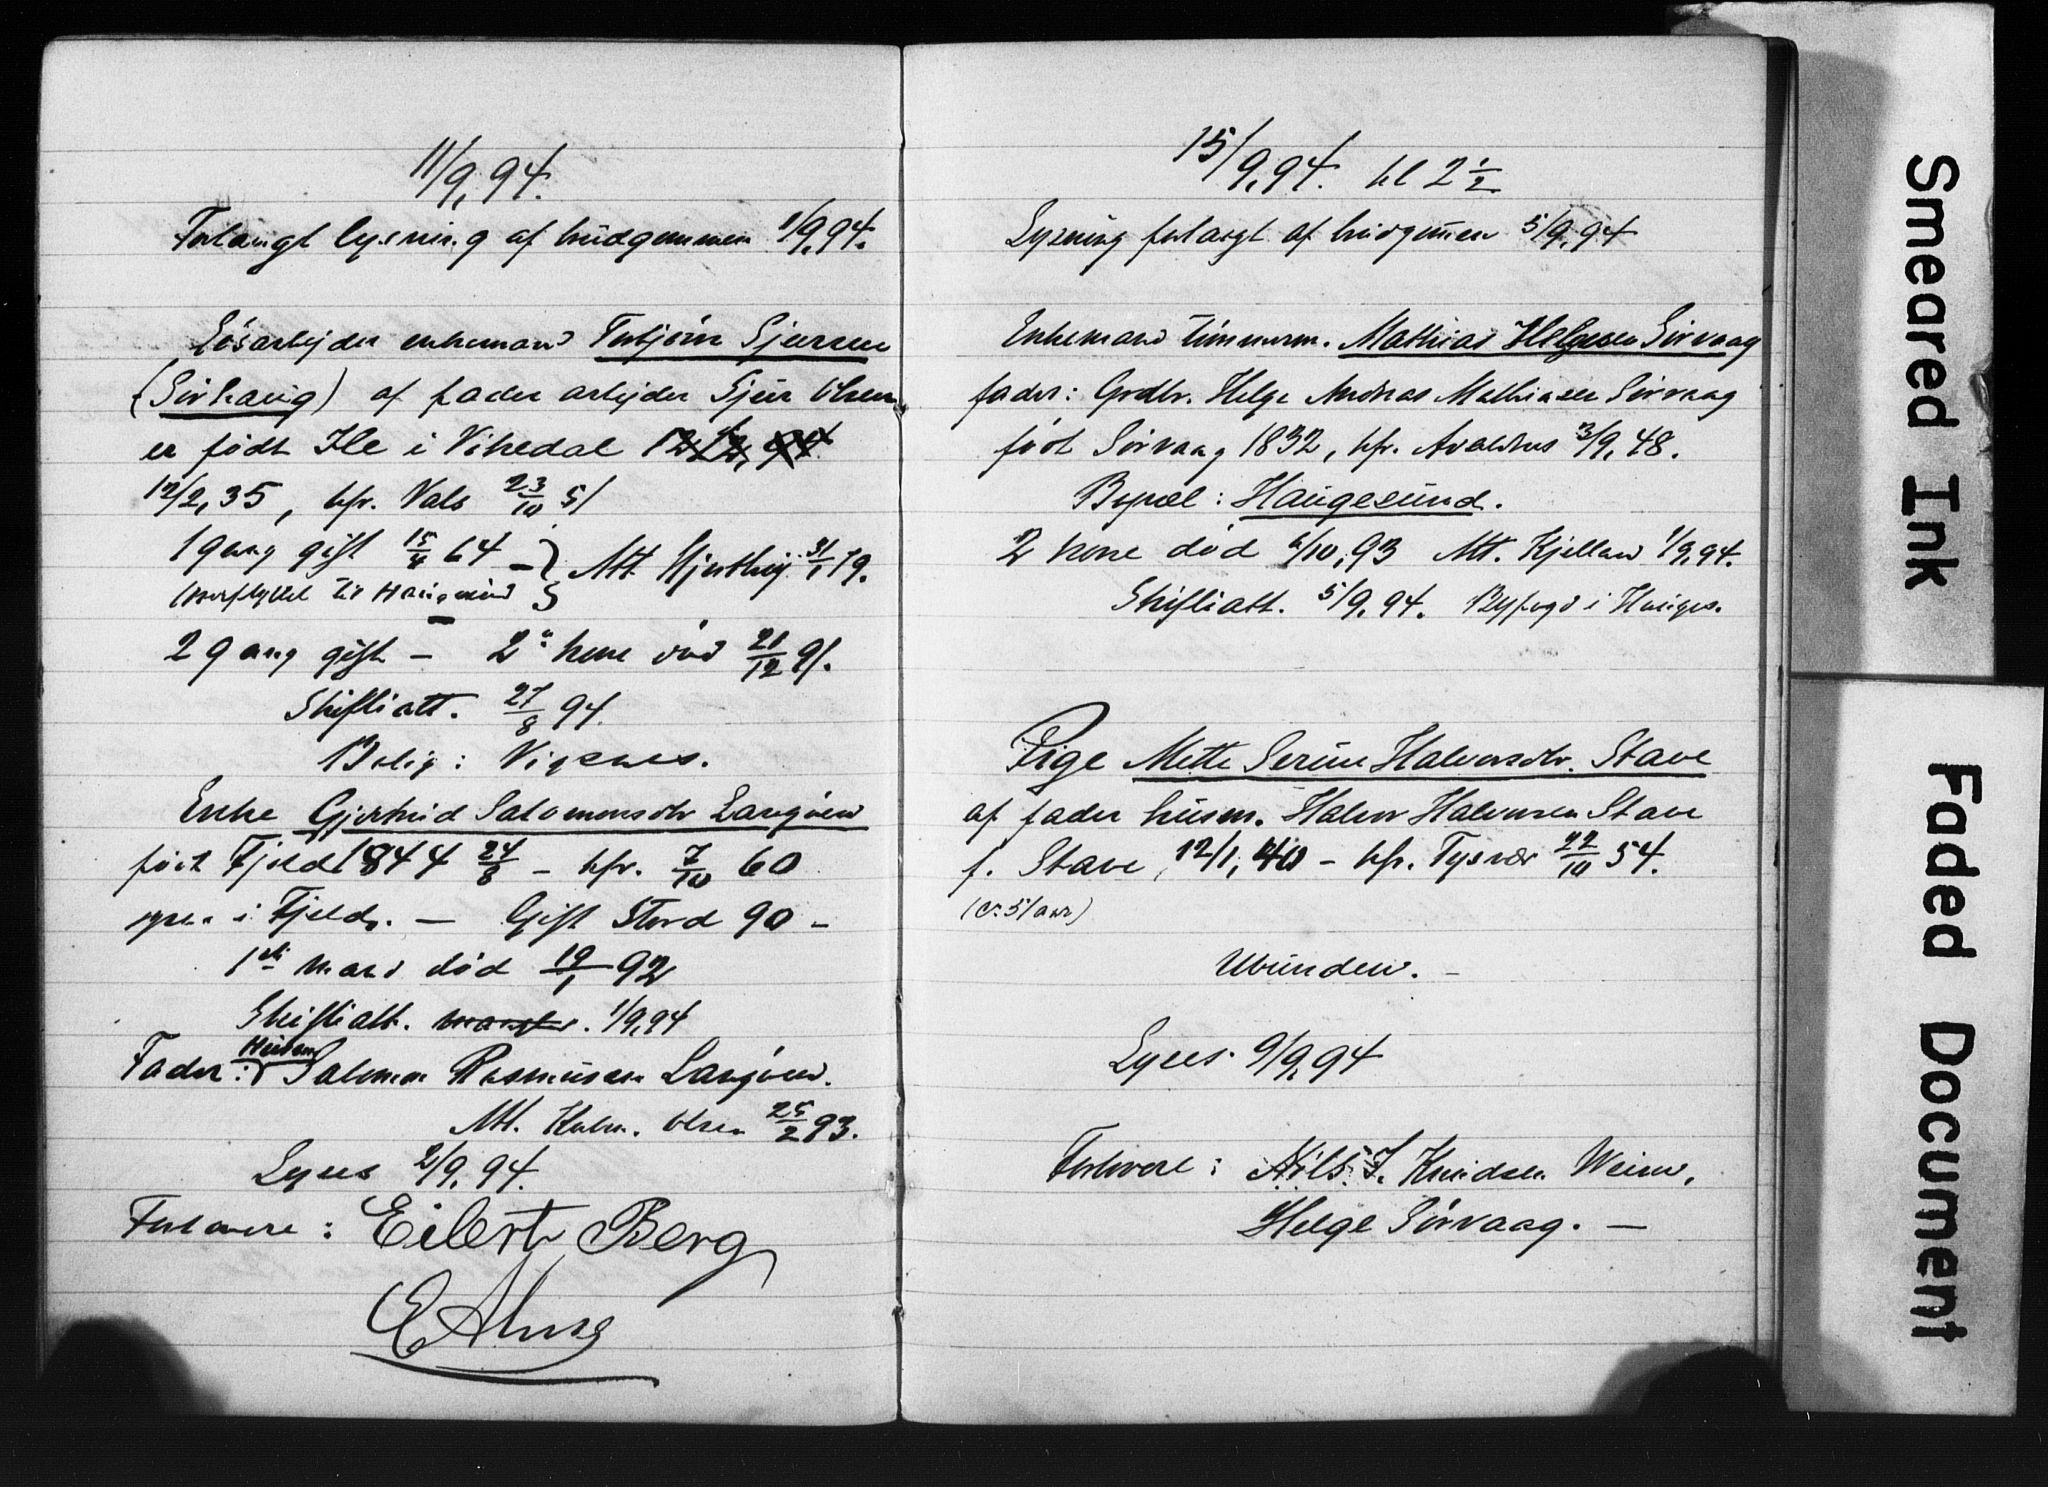 11/9.94.
Forlangt lysning af brudgommen 1/9.94.
Løsarbejder enkemand Torbjørn Sjursen
(Sørhaug) af fader arbejder Sjur Olsen
er født Ile i Vikedal 12/2, 94
12/2, 35, kfr. Vats 23/10 51
1 gang gift 15/4 64 – } Att. 31/1 79.
(overflyttet til Haugesund
2 gang gift – 2n kone død 21/12 91.
Skifteatt. 27/8 94
Bolig: Vignes.
Enke Gjertrud Salomonsdtr Langøen
født Fjeld 1844 24/8 – kfr. 7/10 60
i Fjeld. – Gift Stord 90 –
1ste mand død 19/1 92
Skifteatt. 1/9.94
Husm
Fader: Salomon Rasmussen Langøen.
Att. Olsen 25/2 93.
Lyses 2/9.94.
Forlovere: Eilert Berg
E
15/9.94. kl 2 1/2
Lysning forlangt af brudgommen 5/9.94
Enkemand tømmerm. Mathias Helgesen Sørvaag
fader: Grdbr. Helge Andreas Mathiasen Sørvaag
født Sørvaag 1832, kfr. Avaldsnes 3/9.48.
Bopæl: Haugesund.
2 kone død 6/10.93 Att. Kjelland 1/9.94.
Skifteatt. 5/9.94. Byfogd i Hauges.
Pige Mette Serine Halvorsdtr. Stave
af fader husm. Halvor Halvorsen Stave
f. Stave, 12/1, 40 – kfr. Tysvær 22/10 54.
(c: 51 aar)
Ubunden. –
Lyses 9/9.94
Forlovere: Nils J. Knudsen
Helge Sørvaag. –
Smeared Ink
Faded Document